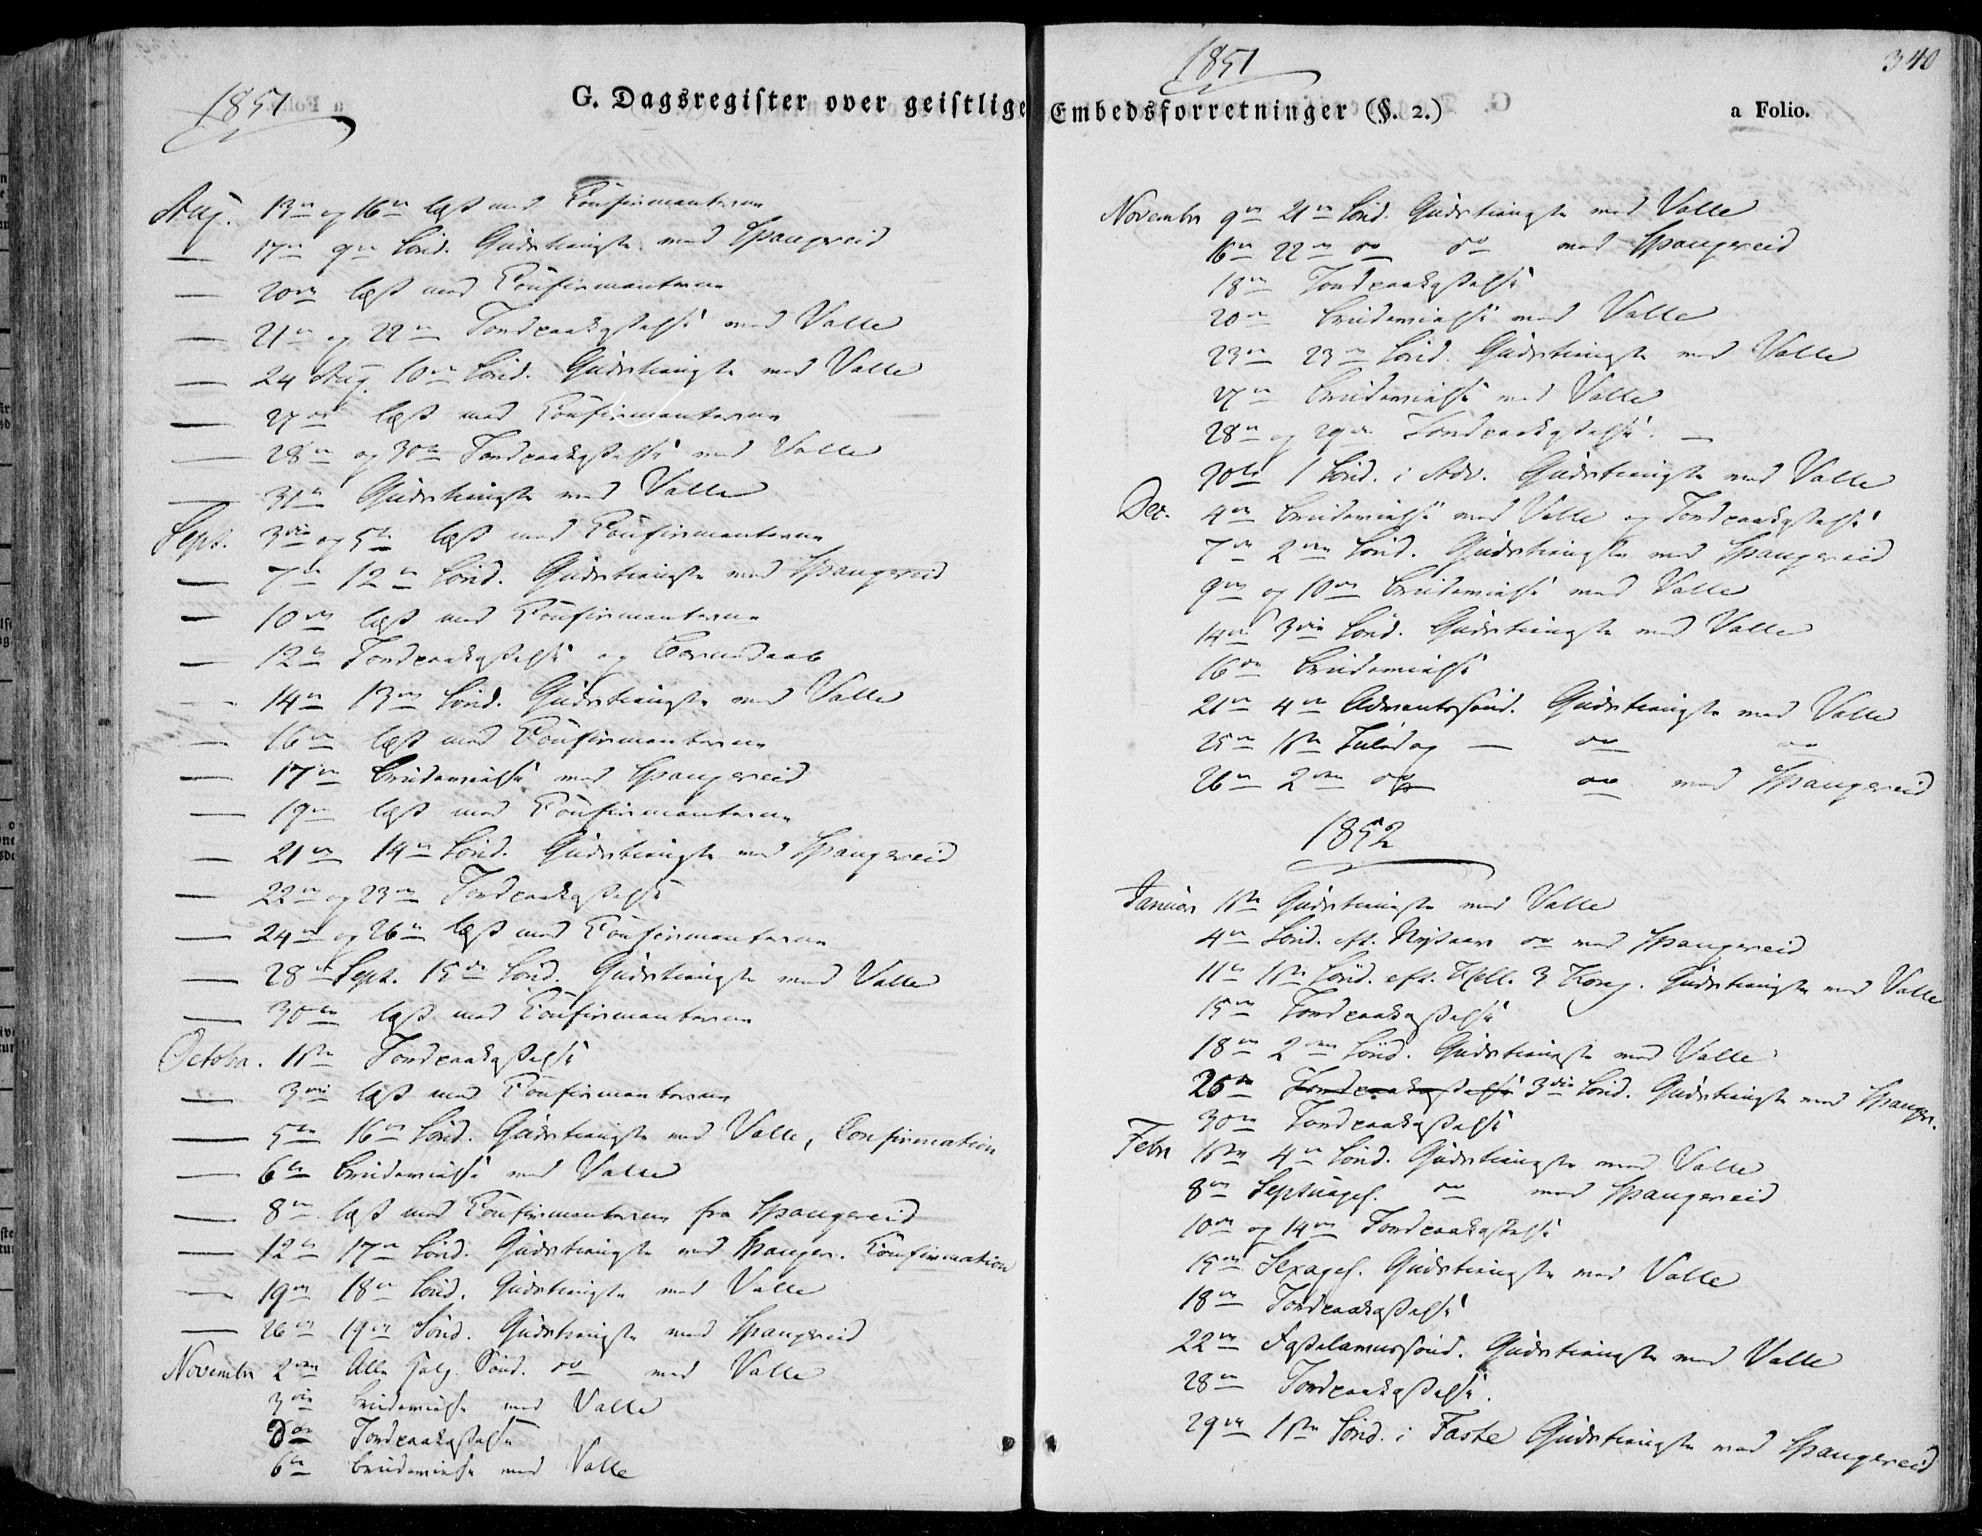 1851
G. Dagsregister over geistlige
Aug. 13de og 16de læst med Confirmanterne
— 17de 9de Sönd. Gudstieneste med Spangereid
— 20de læst med Confirmanterne
— 21de og 22de Jordpaakastelse med Valle
— 24 Aug. 10de Sönd. Gudstieneste med Valle
— 27de læst med Confirmanterne
— 28de og 30te Jordpaakastelse med Valle
— 31te Gudstieneste med Valle
Sept. 3die og 5te læst med Confirmanterne
— 7de 12te Sönd. Gudstieneste med Spangereid
— 10de læst med Confirmanterne
— 12te Jordpaakastelse og Barnedaab
— 14de 13de Sönd. Gudstieneste med Valle
— 16de læst med Confirmanterne
— 17de Brudevielse med Spangereid
— 19de læst med Confirmanterne
— 21de 14de Sönd. Gudstieneste med Spangereid
— 22de og 23de Jordpaakastelse
— 24de og 26de læst med Confirmanterne
— 28de Sept. 15de Sönd. Gudstieneste med Valle
— 30te læst med Confirmanterne
Octobr. 1ste Jordpaakastelse
— 3die læst med Confirmanterne
— 5te 16de Sönd. Gudstieneste med Valle, Confirmation
— 6te Brudevielse med Valle
— 8de læst med Confirmanterne fra Spangereid
— 12te 17de Sönd. Gudstieneste med Spanger. Confirmation
— 19de 18de Sönd. Gudstieneste med Valle
— 26de 19de Sönd. Gudstieneste med Spangereid
Novembr 2den Alle Helg. Sönd. do med Valle
3die Brudevielse med Valle
Jordpaakastelse
6te Brudevielse med Valle
1851
340
Embedsforretninger (§. 2.)
a Folio.
Novembr 9de 21de Sönd. Gudstieneste med Valle
16de 22de do do med Spangereid
18de Jordpaakastelse
20de Brudevielse med Valle
23de 23de Sönd. Gudstieneste med Valle
27de Brudevielse med Valle
28de og 29de Jordpaakastelse. —
30te 1 Sönd. i Adv. Gudstieneste med Valle
Dec. 4de Brudevielse med Valle og Jordpaakastelse
7de 2den Sönd. Gudstieneste med Spangereid
9de og 10de Brudevielse med Valle
14de 3die Sönd. Gudstieneste med Valle
16de Brudevielse
21de 4de Adventssönd. Gudstieneste med Valle
25de 1ste Juledag — do do
26de 2den do do med Spangereid
1852
Januar 1ste Gudstieneste med Valle
4de Sönd. eft. Nytaar do med Spangereid
11te 1ste Sönd. eft. Hell. 3 Kong. Gudstieneste med Valle
15de Jordpaakastelse
18de 2den Sönd. Gudstieneste med Valle
25de Jordpaakastelse 3die Sönd. Gudstieneste med Spanger.
30te Jordpaakastelse
Febr 1ste 4de Sönd. Gudstieneste med Valle
8de Septuages. do med Spangereid
10de og 14de Jordpaakastelse
15de Sexages. Gudstieneste med Valle
18de Jordpaakastelse
22de Fastelavnssönd. Gudstieneste med Valle
28de Jordpaakastelse.
29de 1ste Sönd. i Faste Gudstieneste med Spangereid